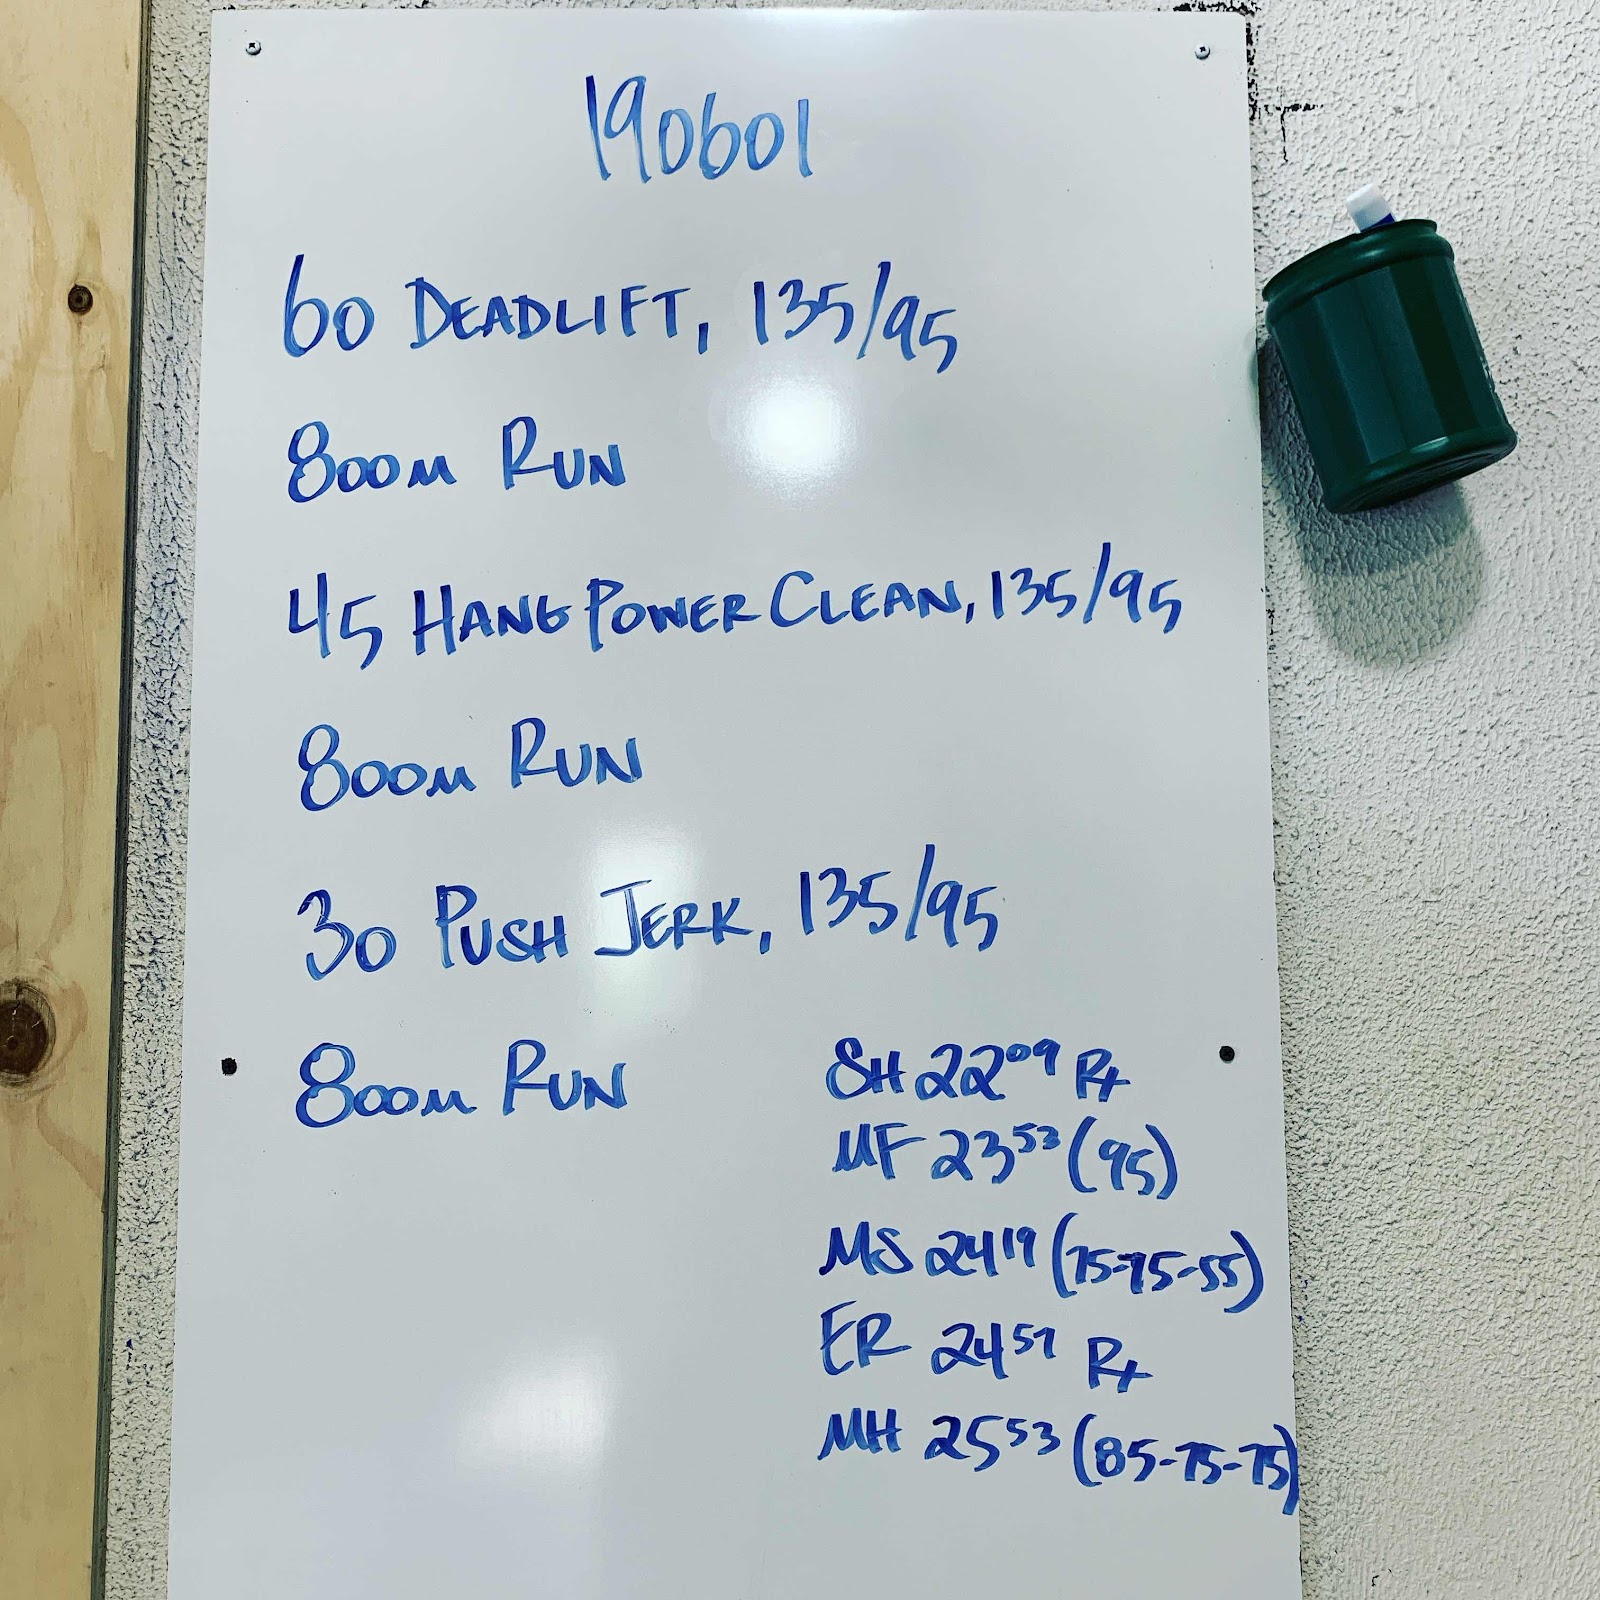 190601
60 DEADLIFT, 135/95
800M RUN
45 HANG POWER CLEAN, 135/95
800M RUN
30 PUSH JERK, 135/95
800M RUN
SH 22 09 Rx
MF 23 53 (95)
MS 24 19 (75-75-55)
ER 24 57 Rx
MH 25 53 (85-75-75)